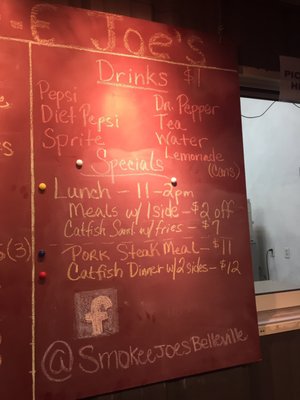 -E Joe's
Drinks $1
Pepsi
Diet Pepsi
Sprite
Dr. Pepper
Tea
Water
Lemonade
(Cans)
Specials
Lunch - 11-2pm
Meals w/ 1 side - $2 off
Catfish Sand w/ fries - $7
Pork Steak Meal - $11
Catfish Dinner w/ 2 sides - $12
(3)
f
@SmokeeJoesBelleville